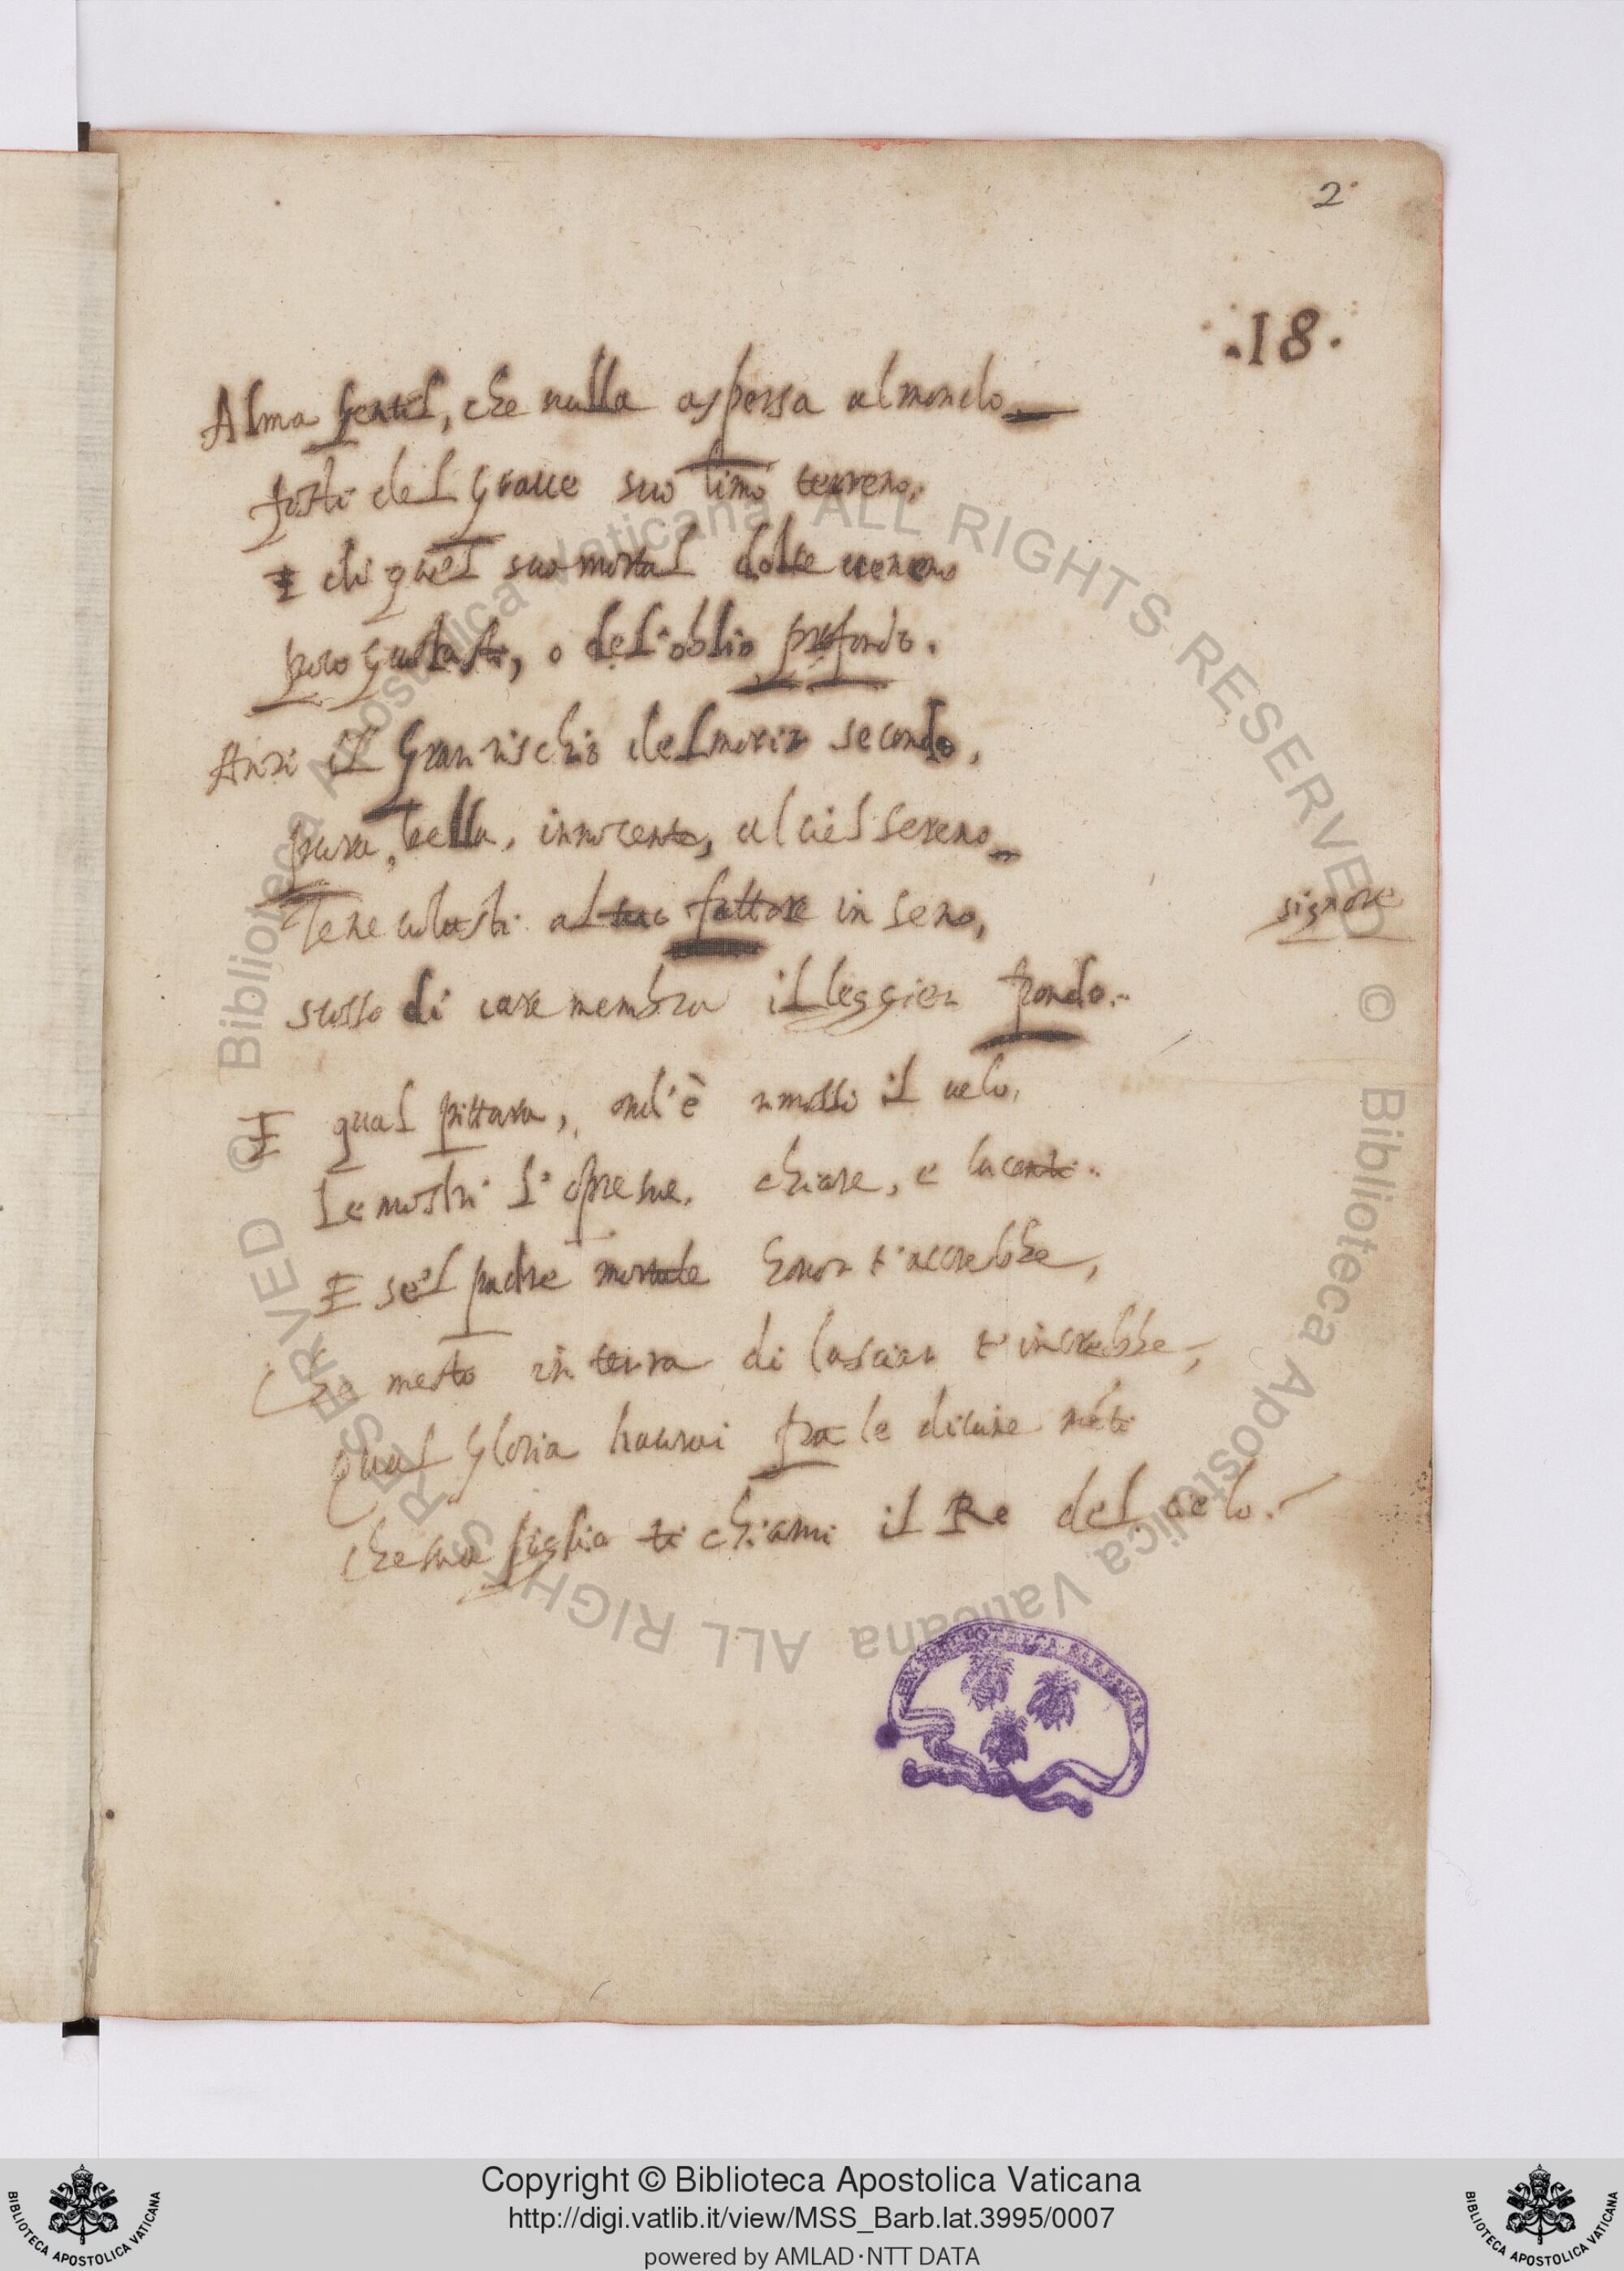 2
.18.
Alma gentil, che nulla aspersa al mondo
fosti del graue suo limo terreno,
E di quel suo mortal dolce ueneno
poco gustasti, o del'oblio profondo.
Anzi il gran rischio del morir secondo,
pura, bella, innocente, al ciel sereno
Te ne uolasti al tuo fattore in seno,
signore
scosso di care membra il leggier pondo.
E qual pittura, ond'è rimosso il uelo,
Le mostri l'opre sue. chiare, e lucenti.
E se'l padre mortale honor t'accrebbe,
Che mesto in terra di lasciar t'increbbe,
Qual gloria haurai fra le diuine méti
che sua figlia ti chiami il Re del cielo.
EX BIBLIOTHECA BARBERINA
© Biblioteca Apostolica Vaticana ALL RIGHTS RESERVED
© Biblioteca Apostolica Vaticana ALL RIGHTS RESERVED
Copyright © Biblioteca Apostolica Vaticana
http://digi.vatlib.it/view/MSS_Barb.lat.3995/0007
powered by AMLAD·NTT DATA
BIBLIOTECA APOSTOLICA VATICANA
BIBLIOTECA APOSTOLICA VATICANA